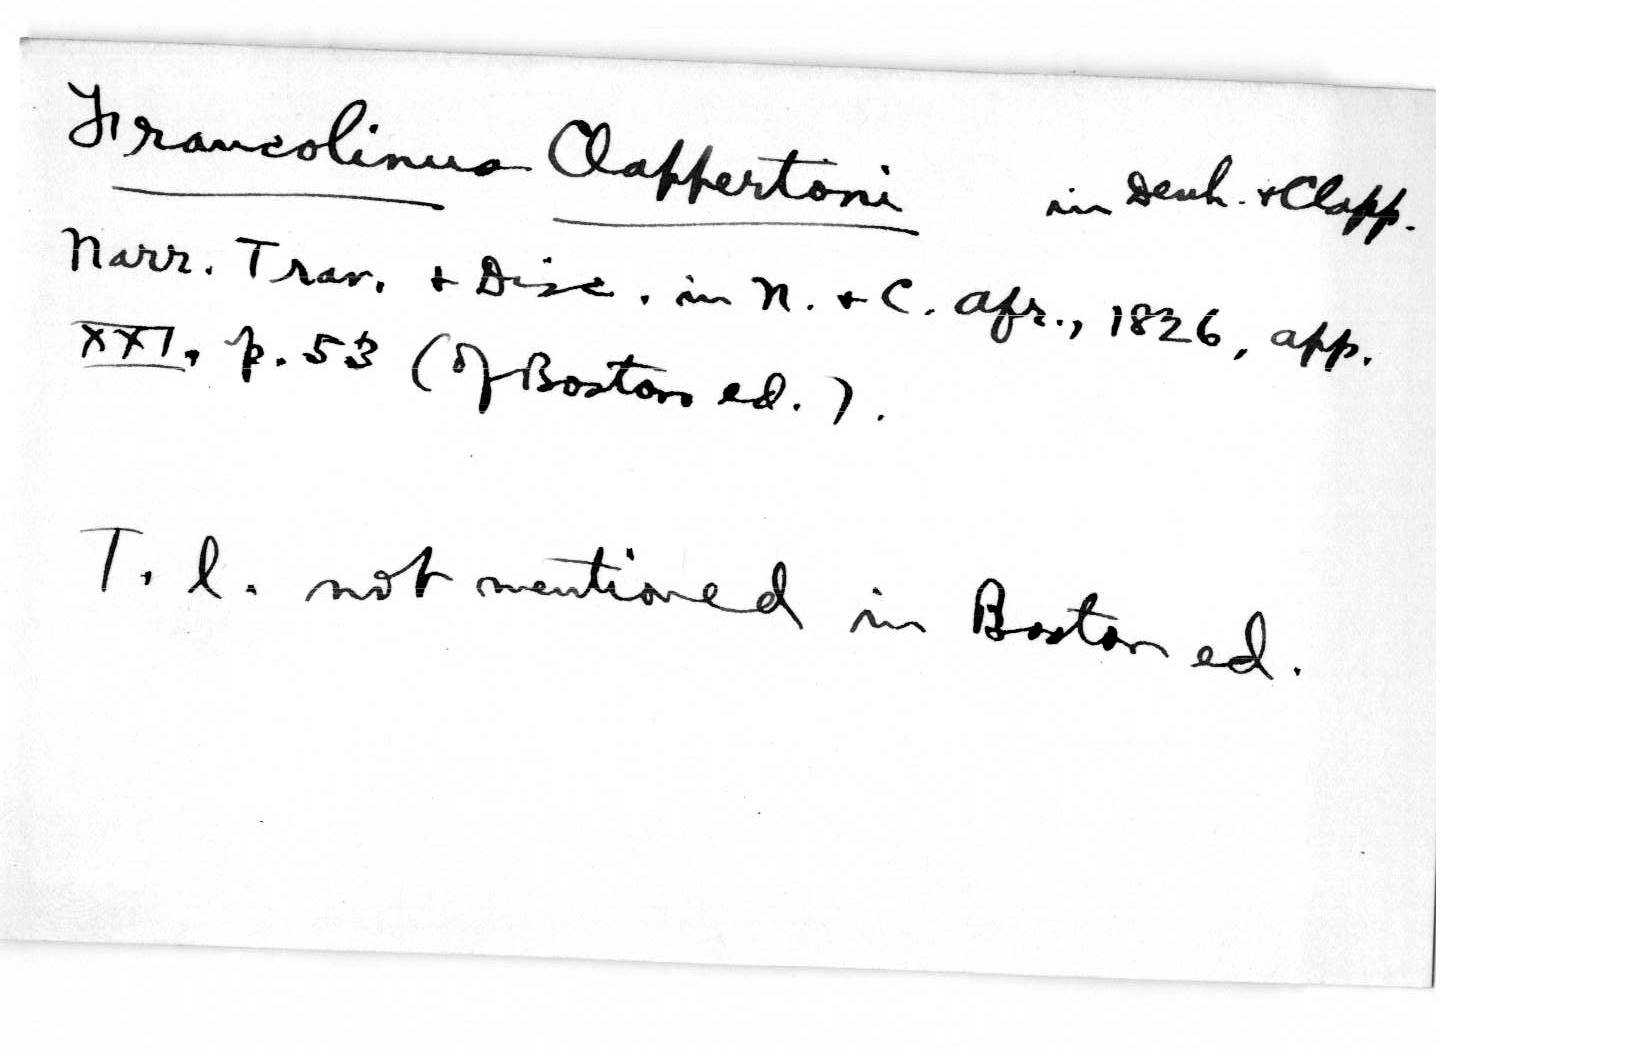 Francolinus Clappertoni in Denh. & Clapp.
Narr. Trav. & Disc. in N. & C. Afr., 1826, app.
XXI, p. 53 (of Boston ed.).
T. l. not mentioned in Boston ed.